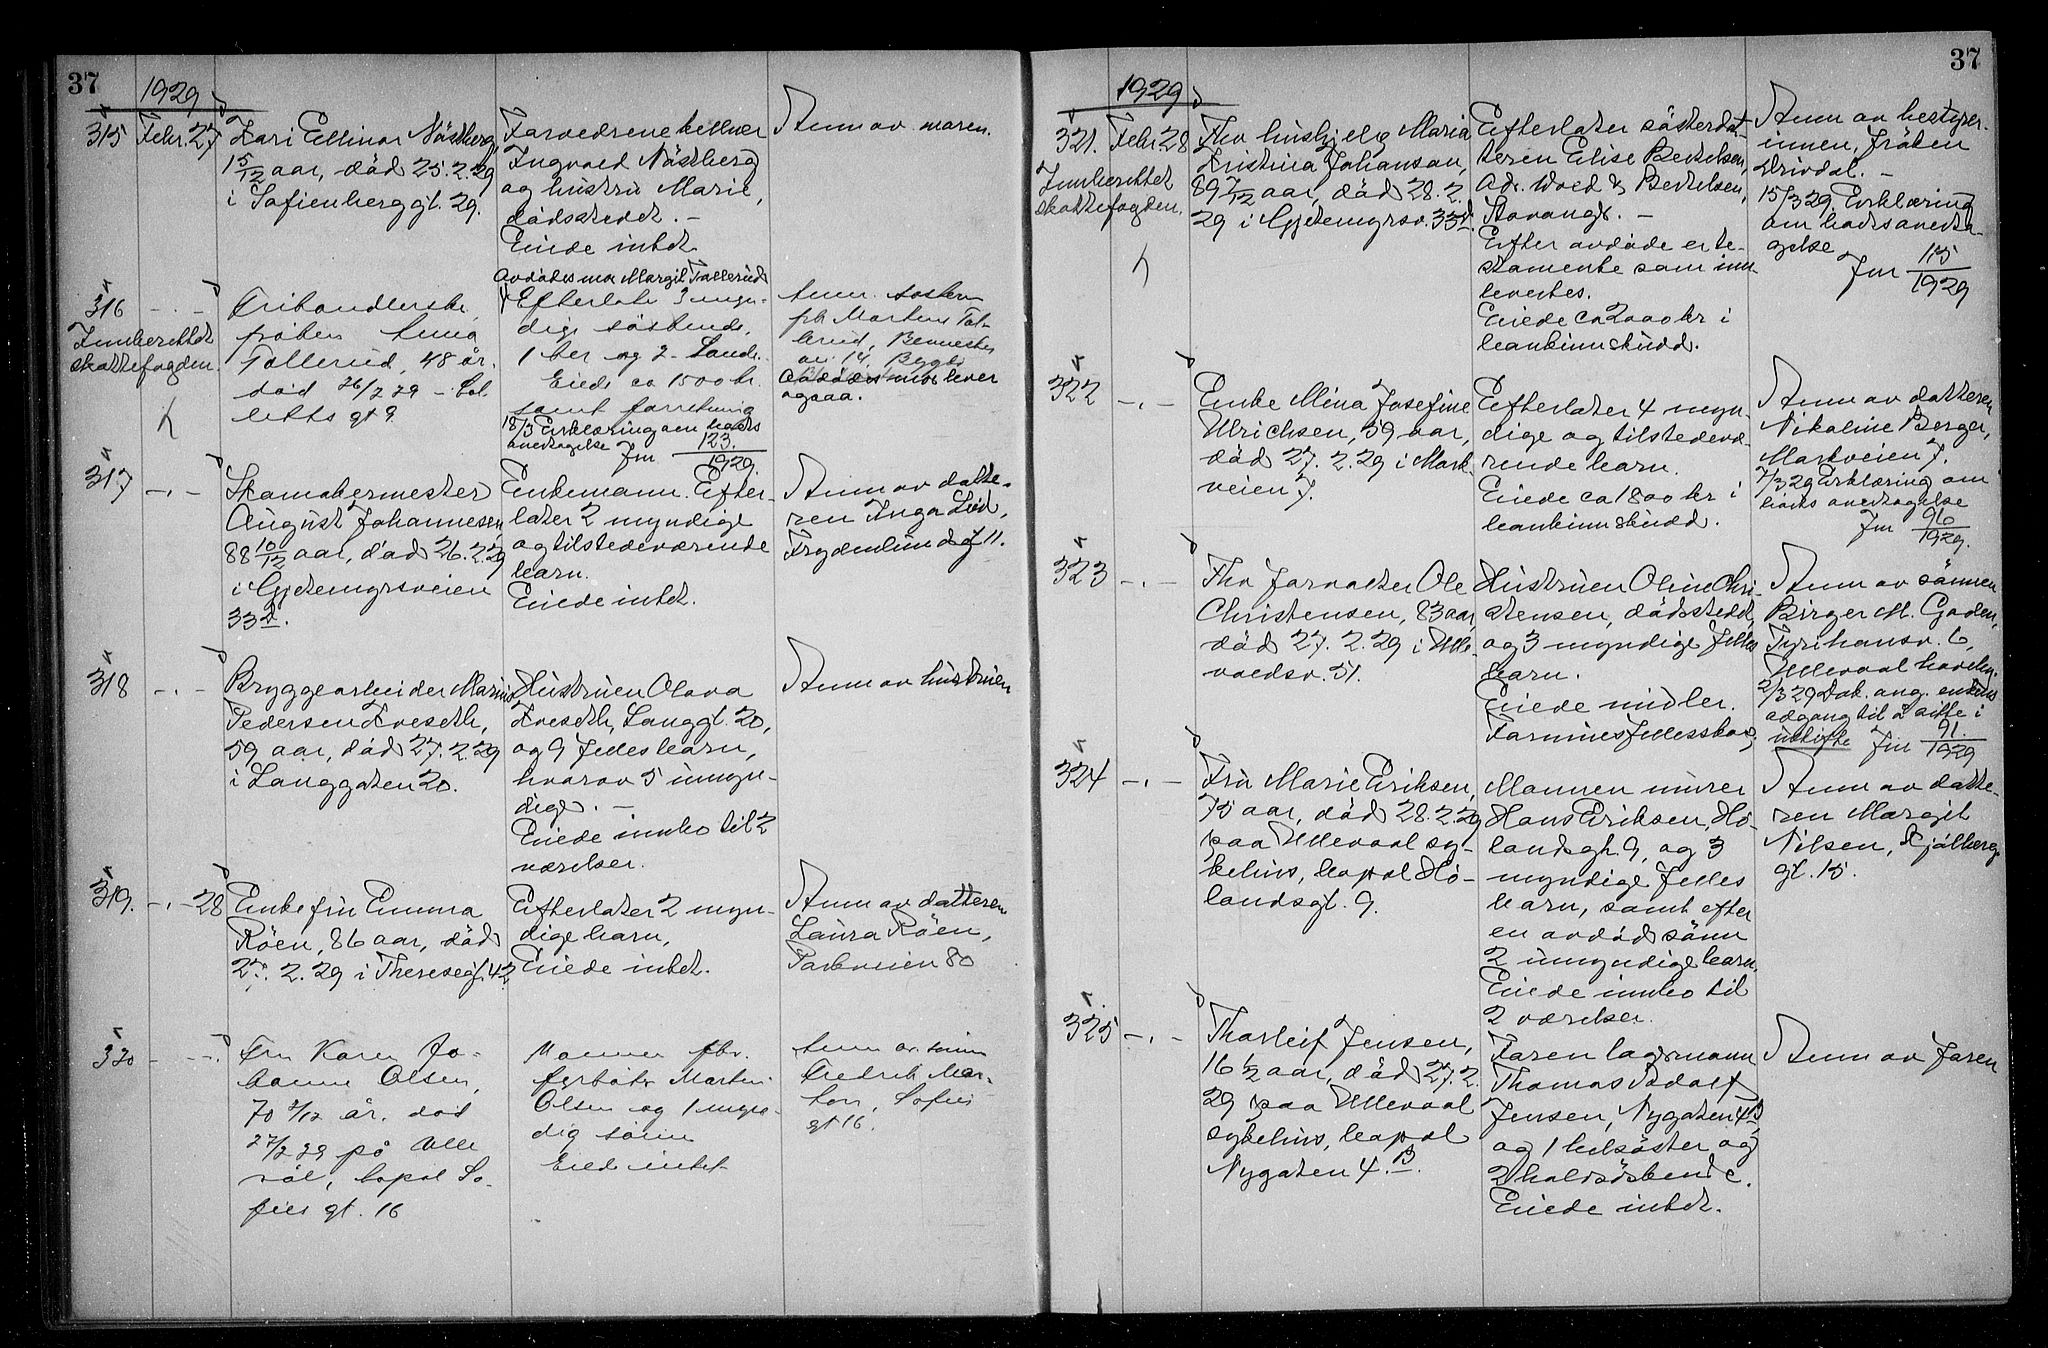 37
1929
315 Febr. 27
Kari Ellinor Nöstberg,
5/12 aar, död 25.2.29
i Sofienberggt. 29.
Forældrene kellner
Ingvald Nöstberg
og hustru Marie,
dödsstedet. –
Eiede intet.
Anm av moren.
316 – " –
Innberettet
skattefogden.
fröken Anna
Tollerud, 48 år.
död 26/2 29 –
letts gt 9
Avdödes mor Margit Tollerud
Efterlater 3 myn-
dige söskende,
1 her og 2
Eiede ca 1500 kr.
samt forretning
18/3 Erklæring om boets
overtagelse Jm 123/1929.
Anm. söster
frk Martine Tol-
lerud,
14, Bygdö
Avdödes mor lever
ogsaa.
317 – " –
Skomakermester
August Johannesen,
88 10/12 aar, död 26.2.29
i Gjetemyrsveien
33d.
Enkemann. Efter-
later 2 myndige
og tilstedeværende
barn.
Eiede intet.
Anm av datte-
ren Inga Lid,
Frydenlundgt 11.
318 – " –
Bryggearbeider Marius
Pedersen Kveseth,
59 aar, död 27.2.29
i Langgaten 20.
Hustruen Olava
Kveseth, Langgt. 20,
og 9 fellesbarn,
hvorav 5 umyn-
dige. –
Eiede innbo til 2
værelser.
Anm av hustruen
319. – " – 28
Enkefru Emma
Röen, 86 aar, död
27.2.29 i Theresegt. 42
Efterlater 2 myn-
dige barn,
Eiede intet.
Anm av datteren
Laura Röen,
Parkveien 80
320 – " –
Fru Karen Jo-
hanne Olsen,
70 2/12 år. död
27/2 29 på Ulle
vål, bopæl So-
fies gt. 16
Mannen fhv.
Martin
Olsen og 1 myn-
dig sönn
Eiede intet
Anm av sönn
Fredrik Mar-
Sofies
gt 16.
37
1929
321. Febr 28
Innberettet
skattefogden.
Fhv hushjelp Maria
Kristina Johanson,
89 7/12 aar, död 28.2.
29 i Gjetemyrsv. 33d.
Efterlater sösterdat-
teren Elise Bertelsen,
adr. Wold & Bertelsen,
Stavanger. –
Efter avdöde er te-
stamente som inn-
levertes.
Eiede ca 2000 kr i
bankinnskudd.
Anm av bestyrer-
innen, fröken
Drivdal. –
15/3 29 Erklæring
om boets overta-
gelse
Jm 115/1929
322 – " –
Enke Mina Josefine
Ulrichsen, 59 aar,
död 27.2.29 i Mark-
veien 7.
Efterlater 4 myn-
dige og tilstedevæ-
rende barn.
Eiede ca 1800 kr i
bankinnskudd.
Anm av datteren
Nikoline Berger,
Markveien 7.
7/3 29 Erklæring om
boets overtagelse
Jm 96/1929.
323 – " –
Fhv forvalter Ole
Christensen, 83 aar,
död 27.2.29 i Ulle-
voldsv. 51.
Hustruen Oline Chri-
stensen, dödsstedet,
og 3 myndige felles
barn.
Eiede midler.
Formuesfellesskap
Anm av sönnen
Birger M. Goden,
Tyrihansv. 6,
Ullevaal haveby.
2/3 29 Dok. ang. enkens
adgang til å sitte i
uskifte Jm 91./1929
324 – " –
Fru Marie Eriksen,
75 aar, död 28.2.29
paa Ullevaal sy-
kehus, bopæl Hö-
landsgt. 9.
Mannen murer
Hans Eriksen, Hö-
landsgt. 9, og 3
myndige felles
barn, samt efter
en avdöd sönn
2 umyndige barn.
Eiede innbo til
2 værelser.
Anm av datte-
ren Margit
Nilsen, Kjölberg-
gt. 15.
325 – " –
Thorleif Jensen,
16 1/2 aar, död 27.2.
29 paa Ullevaal
sykehus, bopæl
Nygaten 4.B.
Faren lagermann
Thomas Adolf
Jensen, Nygaten 4B
og 1 helsöster og
2 halvsöskende.
Eiede intet.
Anm av faren